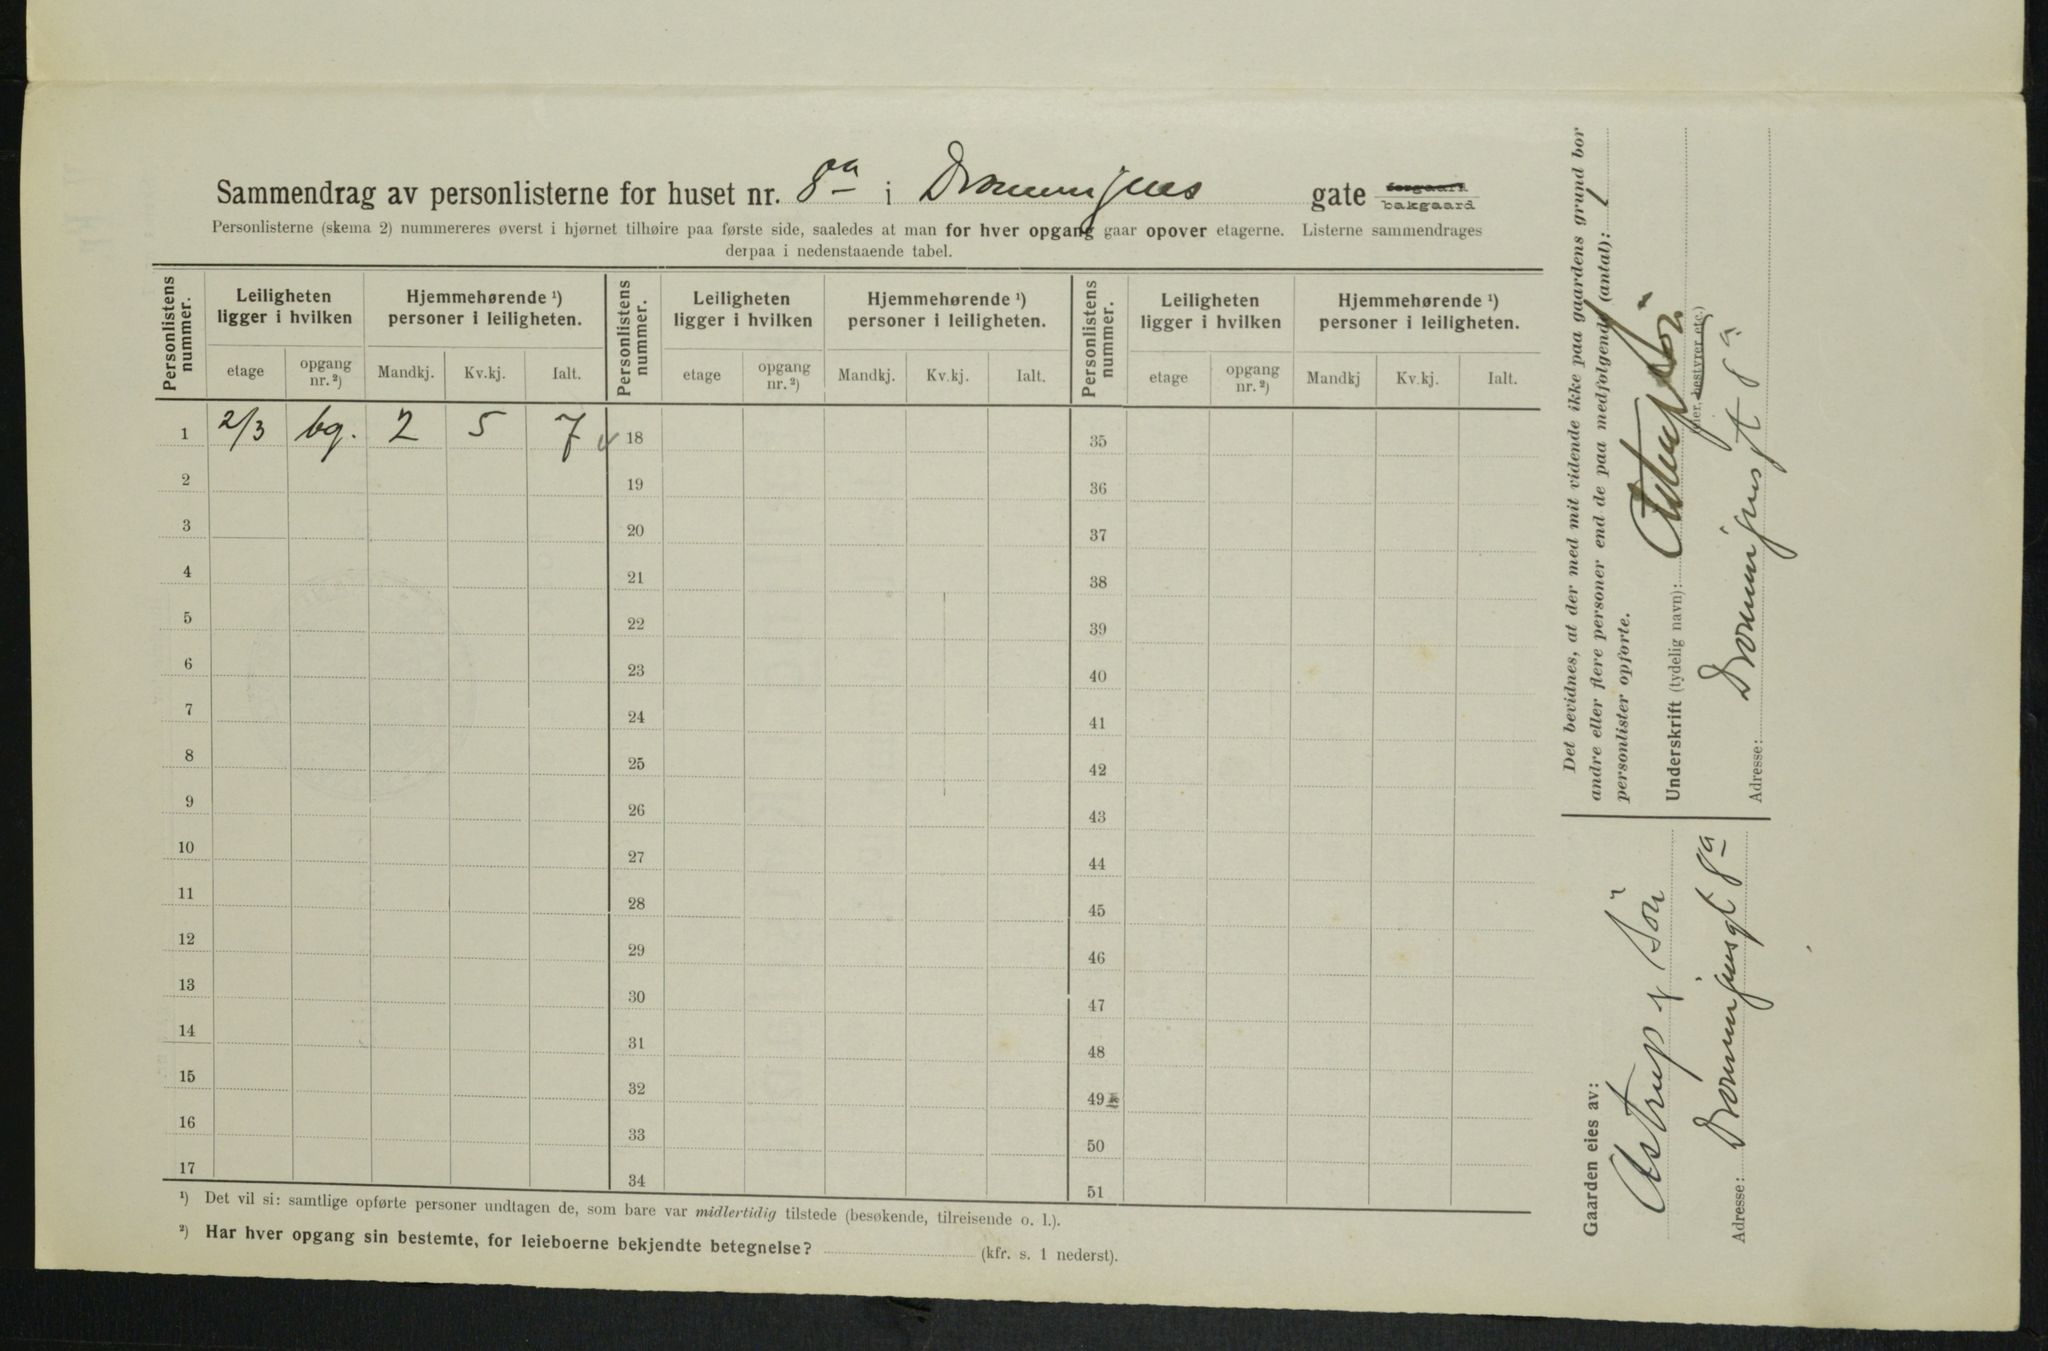 Sammendrag av personlisterne for huset nr. 8a i Dronningens gate forgaard bakgaard
Personlisterne (skema 2) nummereres øverst i hjørnet tilhøire paa første side, saaledes at man for hver opgang gaar opover etagerne. Listerne sammendrages
derpaa i nedenstaaende tabel.
Personlistens nummer. Leiligheten ligger i hvilken Hjemmehørende ¹) personer i leiligheten. Personlistens nummer. Leiligheten ligger i hvilken Hjemmehørende ¹) personer i leiligheten. Personlistens nummer. Leiligheten ligger i hvilken Hjemmehørende ¹) personer i leiligheten.
etage opgang nr. ²) Mandkj. Kv.kj. Ialt. etage opgang nr. ²) Mandkj. Kv.kj. Ialt. etage opgang nr. ²) Mandkj Kv.kj. Ialt.
1 2/3 bg. 2 5 7 18 35
2 19 36
3 20 37
4 21 38
5 22 39
6 23 40
7 24 41
8 25 42
9 26 43
10 27 44
11 28 45
12 29 46
13 30 47
14 31 48
15 32 49
16 33 50
17 34 51
¹) Det vil si: samtlige opførte personer undtagen de, som bare var midlertidig tilstede (besøkende, tilreisende o. l.).
²) Har hver opgang sin bestemte, for leieboerne bekjendte betegnelse? (kfr. s. 1 nederst).
Det bevidnes, at der med mit vidende ikke paa gaardens grund bor
andre eller flere personer end de paa medfølgende (antal): 1
personlister opførte.
Underskrift (tydelig navn): Astrup Søn
(eier, bestyrer etc.)
Adresse: Dronningensgt 8a
Gaarden eies av:
Astrup & Søn
Adresse: Dronningensgt 8a